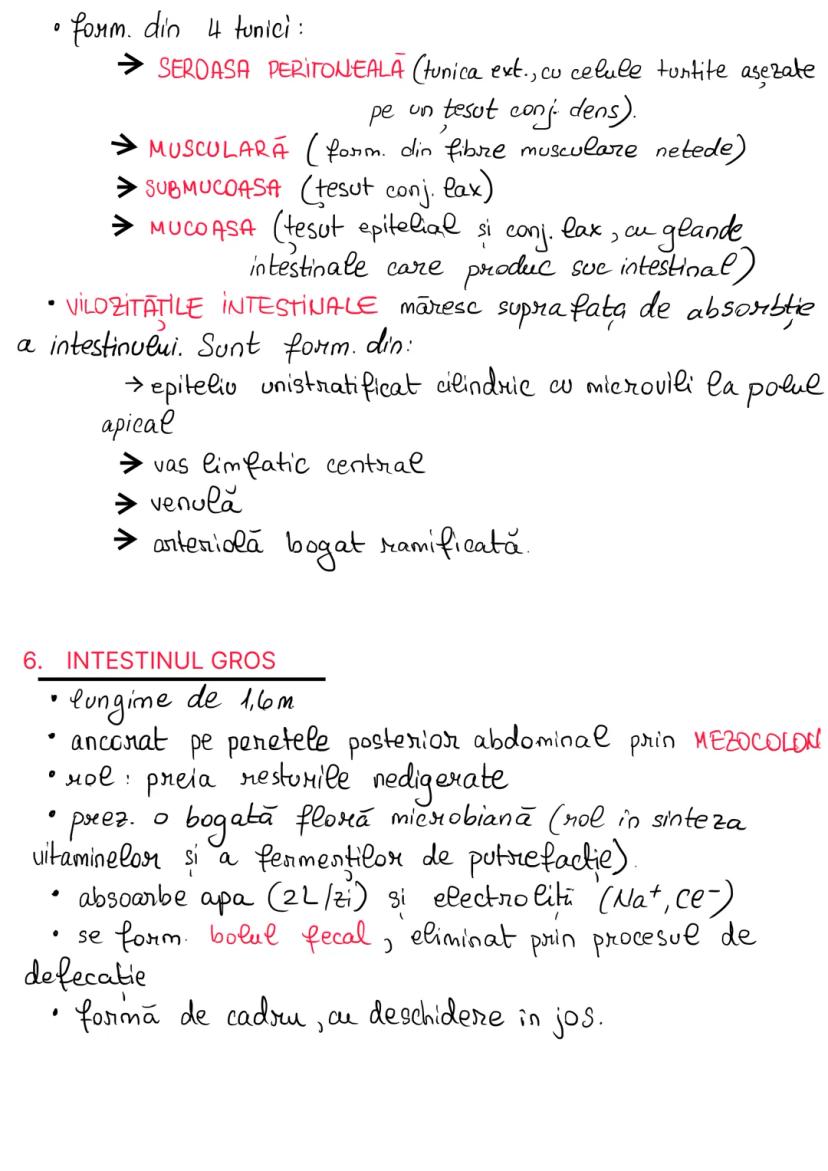 • form. din 4 tunici :
→ SEROASA PERITONEALĂ (tunica ext., cu celule turtite așezate
pe un țesut conj. dens).
→ MUSCULARĂ ( form. din fibre musculare netede)
→ SUBMUCOASA (țesut conj. lax)
→ MUCOASA (țesut epitelial și conj. lax , cu glande
intestinale care produc suc intestinal)
• VILOZITĂȚILE INTESTINALE măresc suprafața de absorbție
a intestinului. Sunt form. din:
→ epiteliu unistratificat cilindric cu microvili la polul
apical
→ vas limfatic central
→ venulă
→ arteriolă bogat ramificată.
6. INTESTINUL GROS
• lungime de 1,6m
• ancorat pe peretele posterior abdominal prin MEZOCOLON
• rol : preia resturile nedigerate
• prez. o bogată floră microbiană (rol în sinteza
vitaminelor și a fermenților de putrefacție).
• absoarbe apa (2L/zi) și electroliți (Na+, Cl-)
• se form. bolul fecal , eliminat prin procesul de
defecație
• formă de cadru , cu deschidere în jos.